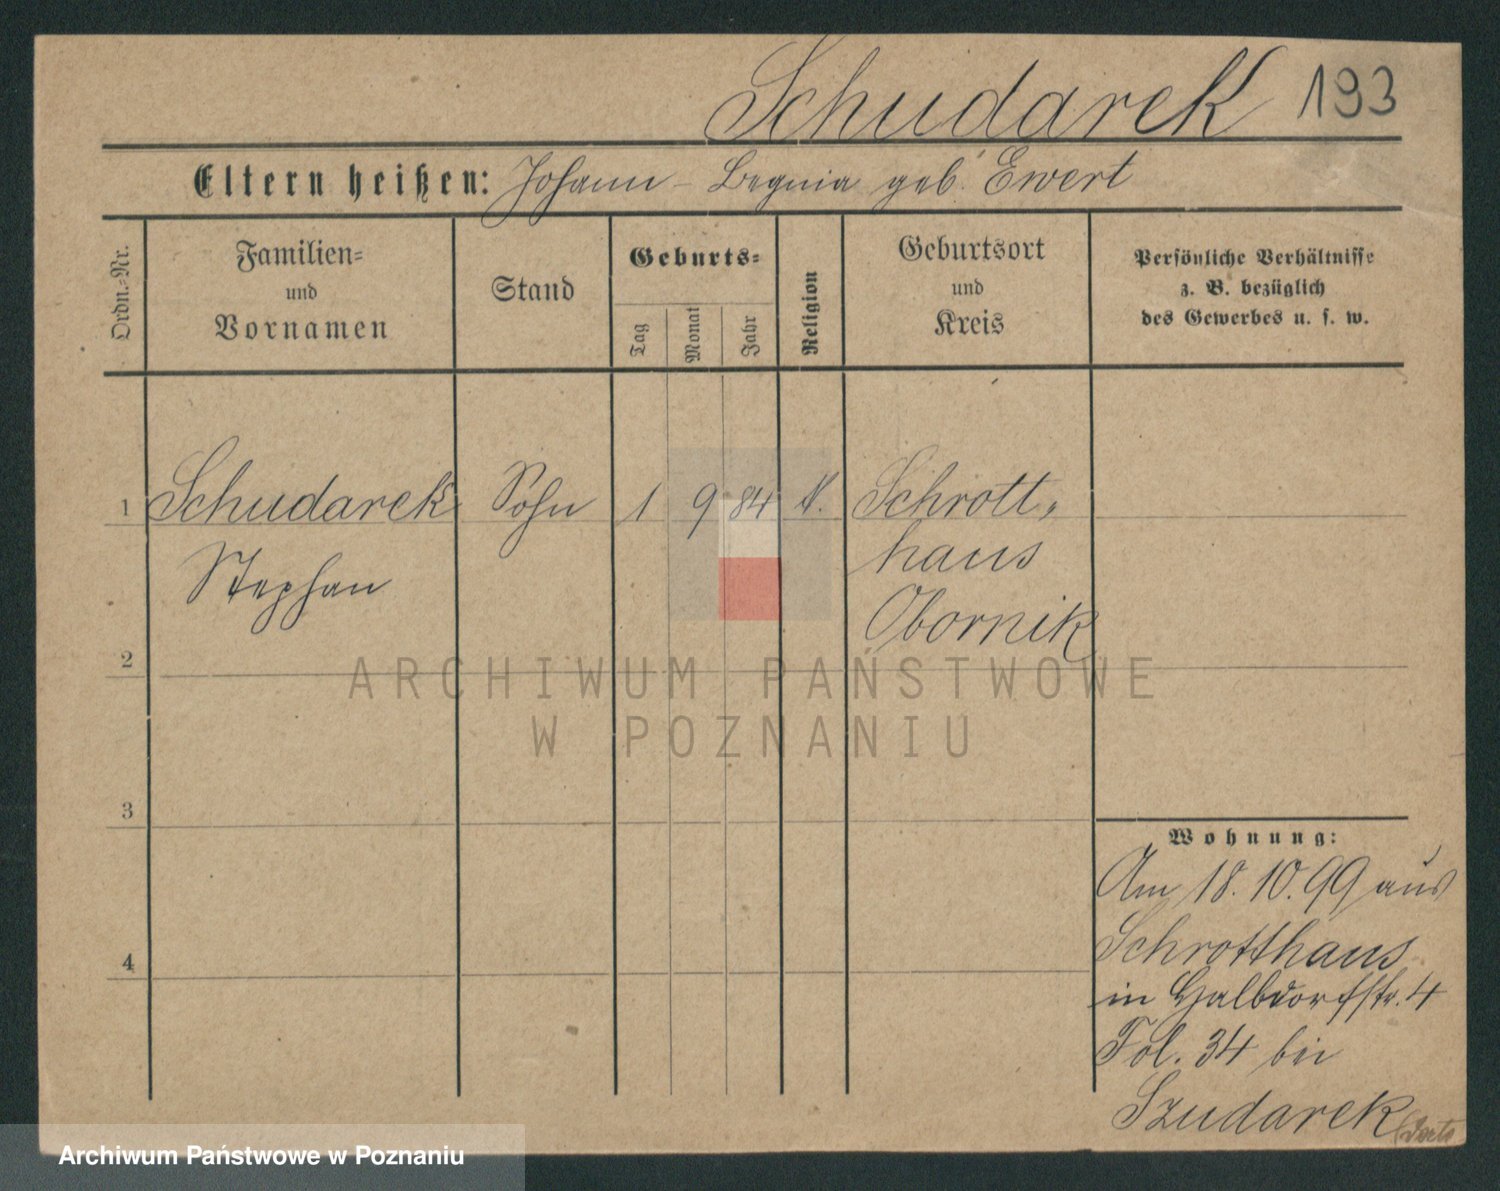 Schudarek 193
Eltern heißen: Johann - Begnia geb. Ewert
Ordn.-Nr.
Familien=
und
Vornamen
Stand
Geburts=
Tag
Monat
Jahr
Religion
Geburtsort
und
Kreis
Persönliche Verhältnisse
z. B. bezüglich
des Gewerbes u. s. w.
1 Schudarek Sohn 1 9 84 k. Schrott,
Stephan
haus
Obornik
2
ARCHIWUM PAŃSTWOWE
W POZNANIU
3
Wohnung:
Am 18. 10. 99 aus
Schrotthaus
4
in Halbdorfstr. 4
Fol. 34 bei
Szudarek
Archiwum Państwowe w Poznaniu